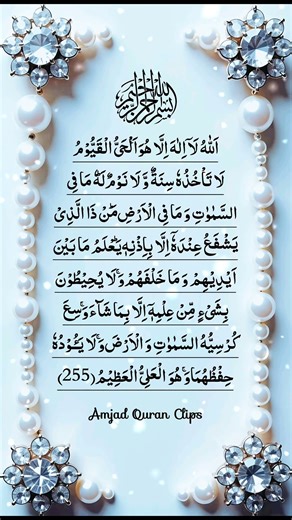 بسم الله الرحمن الرحيم
اَللّٰهُ لَاۤ اِلٰهَ اِلَّا هُوَ اَلْحَیُّ الْقَیُّوْمُ
لَا تَاْخُذُهٗ سِنَةٌ وَّ لَا نَوْمٌ لَهٗ مَا فِی
السَّمٰوٰتِ وَ مَا فِی الْاَرْضِ مَنْ ذَا الَّذِیْ
یَشْفَعُ عِنْدَهٗۤ اِلَّا بِاِذْنِهٖ یَعْلَمُ مَا بَیْنَ
اَیْدِیْهِمْ وَ مَا خَلْفَهُمْ وَ لَا یُحِیْطُوْنَ
بِشَیْءٍ مِّنْ عِلْمِهٖۤ اِلَّا بِمَا شَآءَ وَسِعَ
كُرْسِیُّهُ السَّمٰوٰتِ وَ الْاَرْضَ وَ لَا یَـُٔوْدُهٗ
حِفْظُهُمَا وَ هُوَ الْعَلِیُّ الْعَظِیْمُ (255)
Amjad Quran Clips